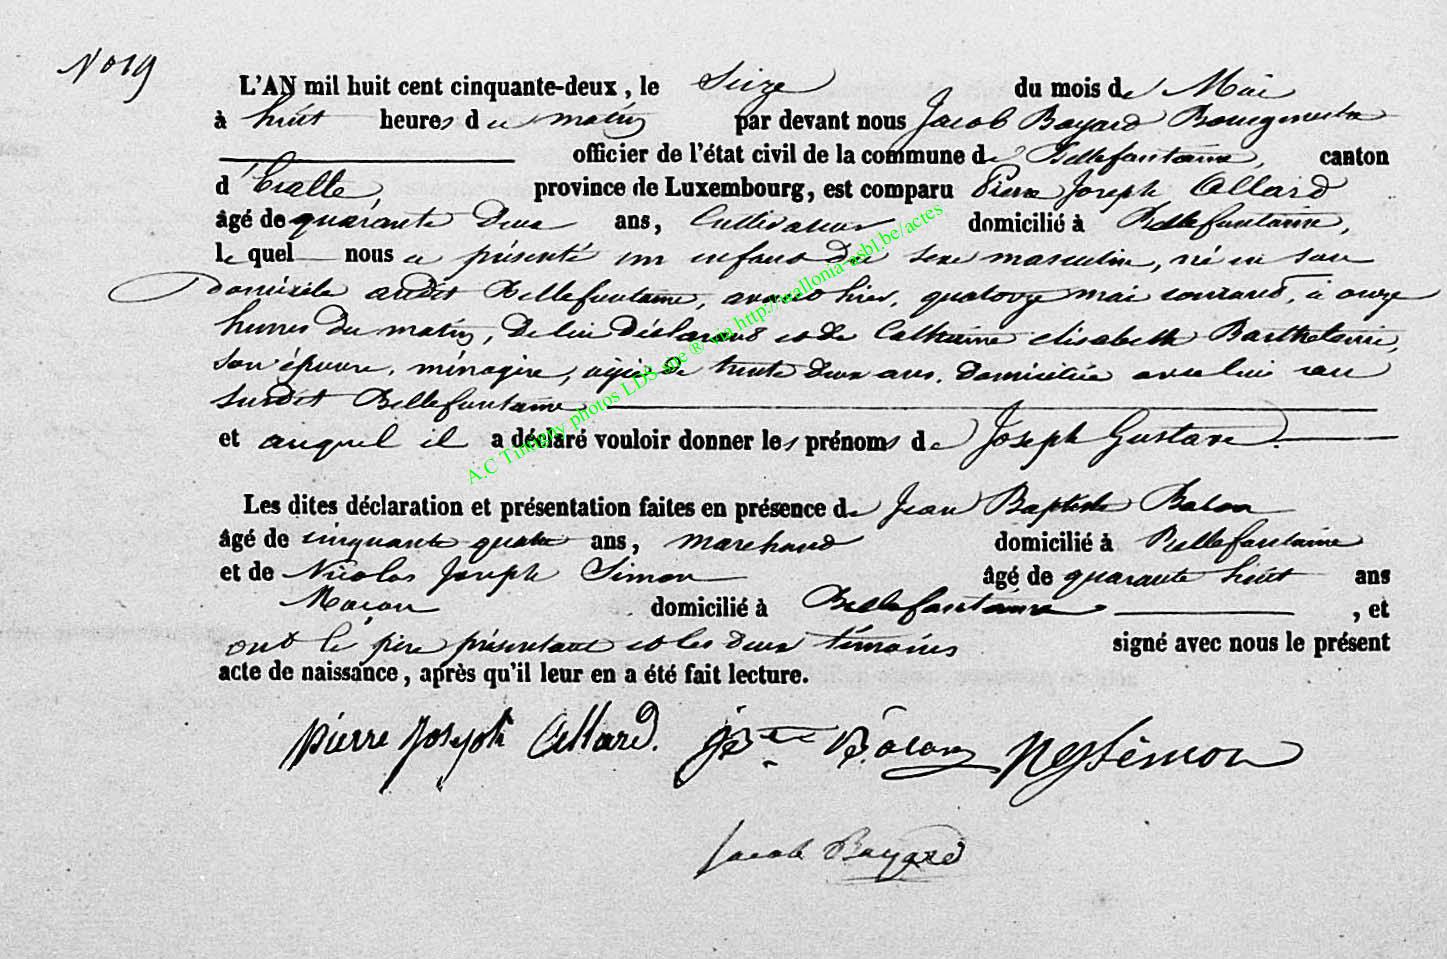 N° 19
L'AN mil huit cent cinquante-deux, le Seize du mois de Mai
à huit heures du matin par devant nous Jacob Bayard Bourgmestre
officier de l'état civil de la commune de Bellefontaine, canton
d'Etalle, province de Luxembourg, est comparu Pierre Joseph Allard
âgé de quarante Deux ans, Cultivateur domicilié à Bellefontaine,
le quel nous a présenté un enfant du sexe masculin, né en son
Domicile audit Bellefontaine, avant hier, quatorze mai courant, à onze
heures du matin, De lui Déclarant et de Catherine elisabeth
son épouse, ménagère, agée de trente deux ans, Domiciliée avec lui au
susdit Bellefontaine
et auquel il a déclaré vouloir donner les prénoms de Joseph Gustave.
Les dites déclaration et présentation faites en présence de Jean Baptiste
âgé de cinquante quatre ans, marchand domicilié à Bellefontaine
et de Nicolas Joseph Simon âgé de quarante huit ans
Macon domicilié à Bellefontaine, et
ont le père présentant et les deux témoins signé avec nous le présent
acte de naissance, après qu'il leur en a été fait lecture.
pierre Joseph Allard. NJ Simon
Jacob Bayard
A.C Tintigny photos LDS site ® via http://wallonia-asbl.be/actes